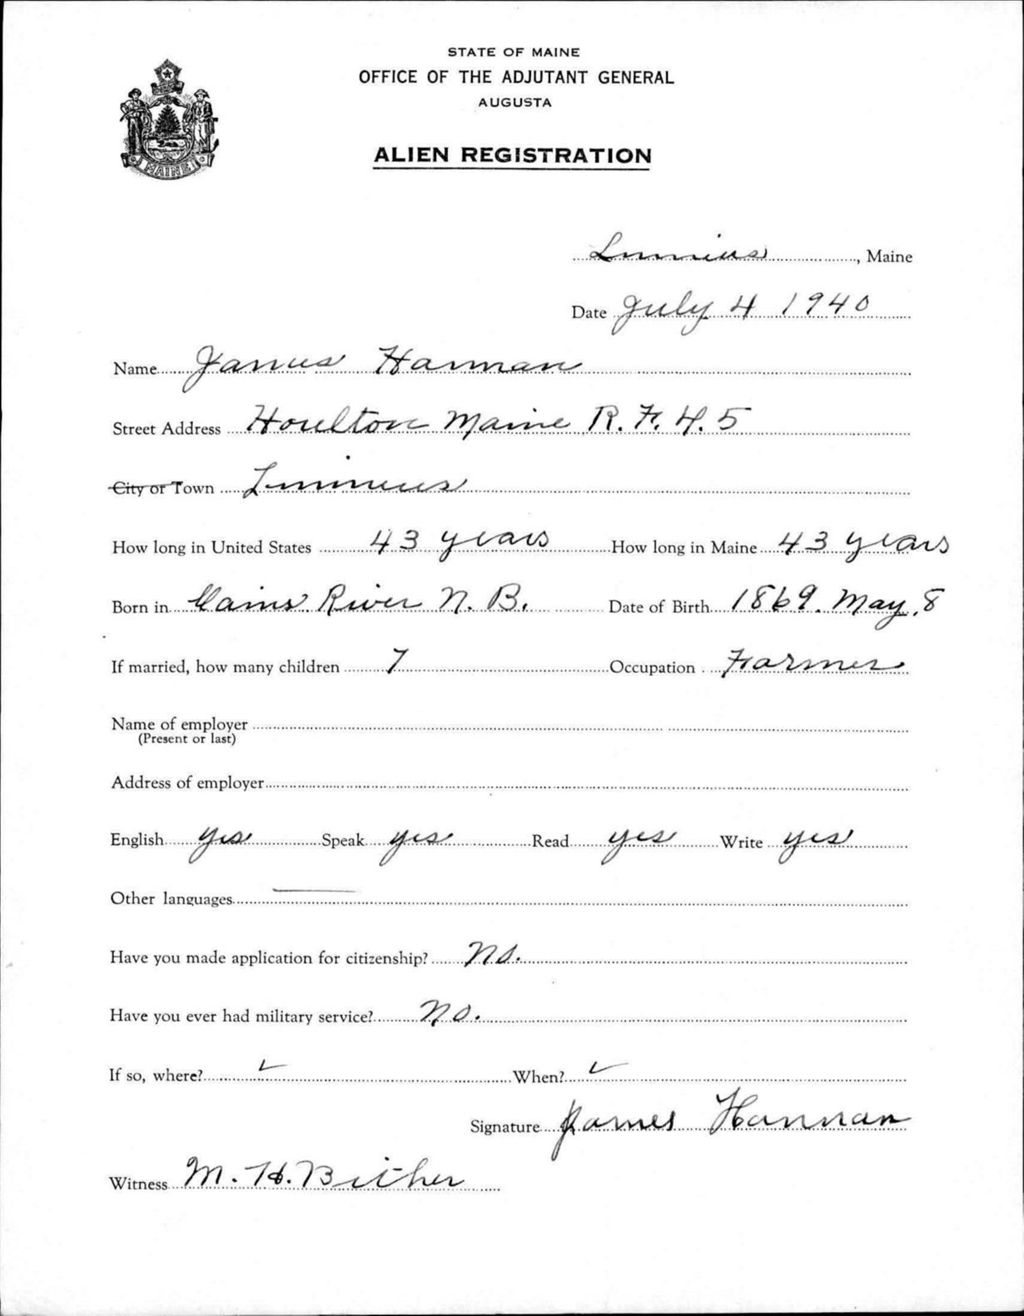 STATE OF MAINE
OFFICE OF THE ADJUTANT GENERAL
AUGUSTA
MAINE
ALIEN REGISTRATION
Linneus, Maine
Date July 4 1940
Name James Hannan
Street Address Houlton Maine R. F. 5
City or Town Linneus
How long in United States 43 years How long in Maine 43 years
Born in River N. B. Date of Birth 1869. May 8
If married, how many children 7 Occupation Farmer
Name of employer
(Present or last)
Address of employer
English yes Speak yes Read yes Write yes
Other languages
Have you made application for citizenship? No.
Have you ever had military service? No.
If so, where? When?
Signature James Hannan
Witness M. H. Bither